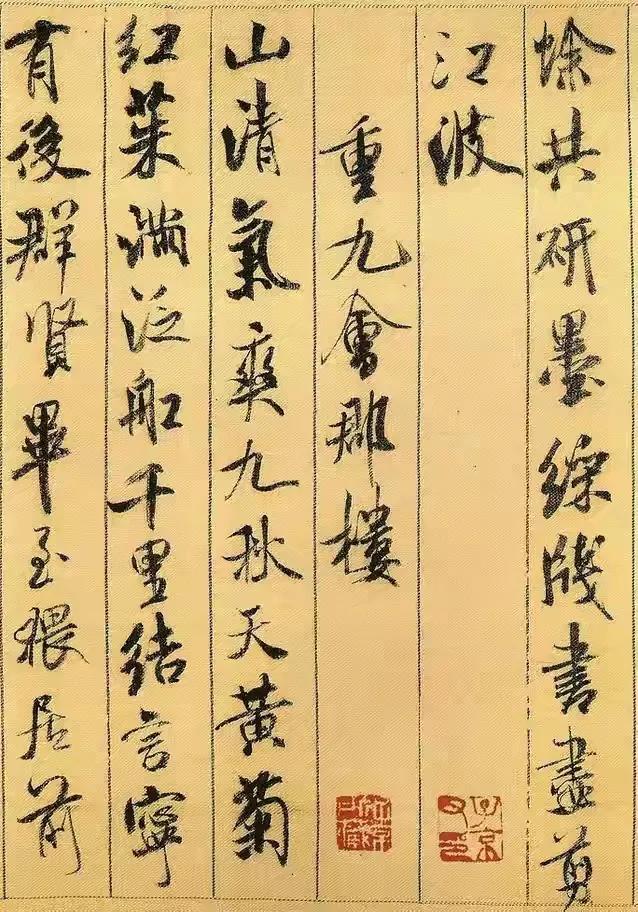 蜍共研墨綵牋書盡剪
江波
重九會郡樓
山清氣爽九秋天黃菊
紅茱滿泛船千里結言寧
有後群賢畢至猥居前